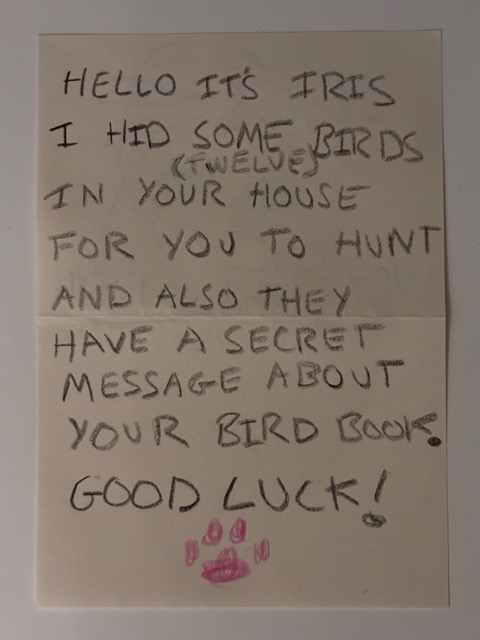 HELLO IT'S IRIS
I HID SOME BIRDS
(TWELVE)
IN YOUR HOUSE
FOR YOU TO HUNT
AND ALSO THEY
HAVE A SECRET
MESSAGE ABOUT
YOUR BIRD BOOK.
GOOD LUCK!